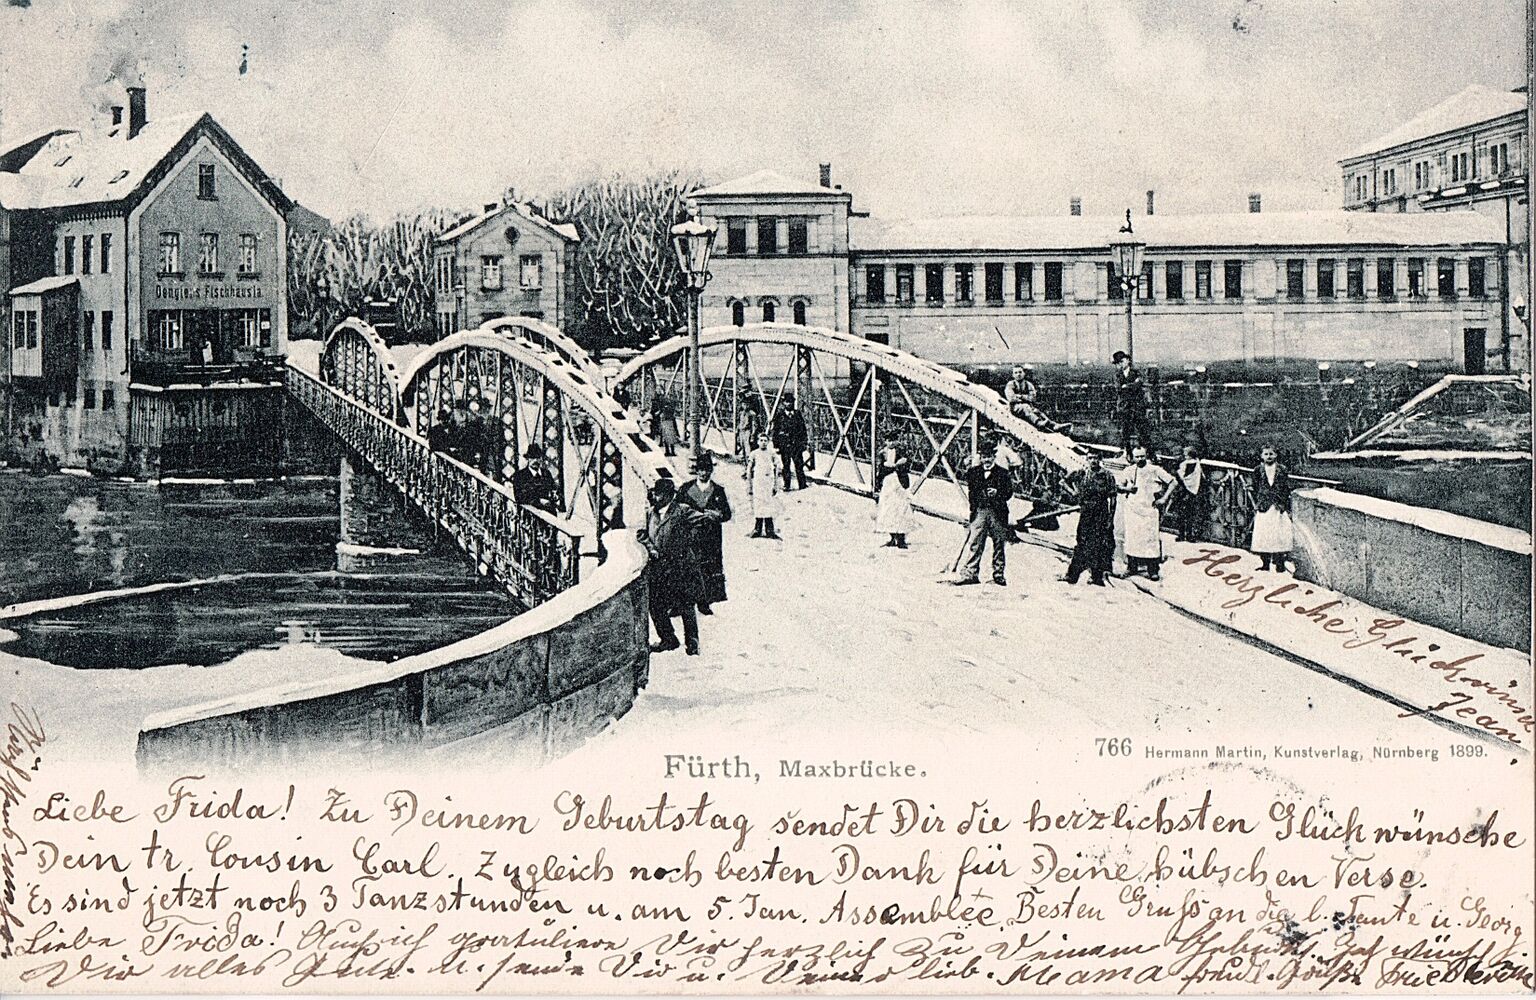 Fischhaus
Herzliche Glückwünsche
Jean.
766 Hermann Martin, Kunstverlag, Nürnberg 1899.
Fürth, Maxbrücke.
Liebe Frida! Zu Deinem Geburtstag sendet Dir die herzlichsten Glückwünsche
Dein tr. Cousin Carl. Zugleich noch besten Dank für Deine hübschen Verse.
Es sind jetzt noch 3 Tanzstunden u. am 5. Jan. Assemblée. Besten Gruß an die l. Tante u. Georg.
Liebe Frida! Auch ich gratuliere Dir herzlich zu Deinem
Dir alles Gute u. sende Dir u. Deiner lieb. Mama freudl. Grüße